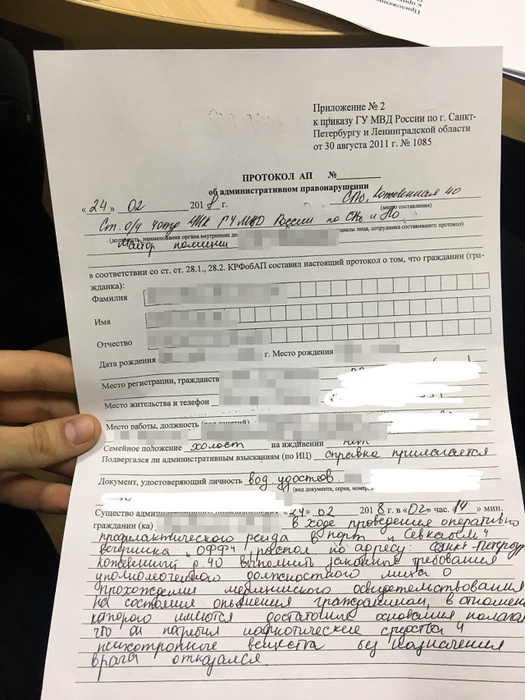 Приложение № 2
к приказу ГУ МВД России по г. Санкт-
Петербургу и Ленинградской области
от 30 августа 2011 г. № 1085
ПРОТОКОЛ АП №
об административном правонарушении
«24» 02 2018 г. СПб, Кожевенная 40
(место составления)
Ст. о/у 4 отд УНК ГУ МВД России по СПб и ЛО
майор полиции
в соответствии со ст. ст. 28.1., 28.2. КРФобАП составил настоящий протокол о том, что гражданин (гра-
жданка):
Фамилия
Имя
Отчество
Дата рождения г. Место рождения
Место регистрации, гражданств
Место жительства и телефон
Место работы, должность
Семейное положение холост на иждивении нет
Подвергался ли административным взысканиям (по ИЦ) справка прилагается
Документ, удостоверяющий личность вод удостов
(вид документа, серия, номер
Существо админ «24» 02 2018 г. в «02» час. 14 » мин.
гражданин (ка) в ходе проведение оперативно
профилактического рейда в "порт "Севкабель"
вечеринка "ОФФ" располо по адресу: Санкт-Петербур
Кожевенный д. 40 выполнить законные требования
уполномоченного должностного лица о
прохождении медицинского освидетельствования
на состояние опьянения гражданином, в отношен
которого имеются достаточные основания полага
что он потребил наркотические средства и
психотропные вещества без назначения
врача отказался.